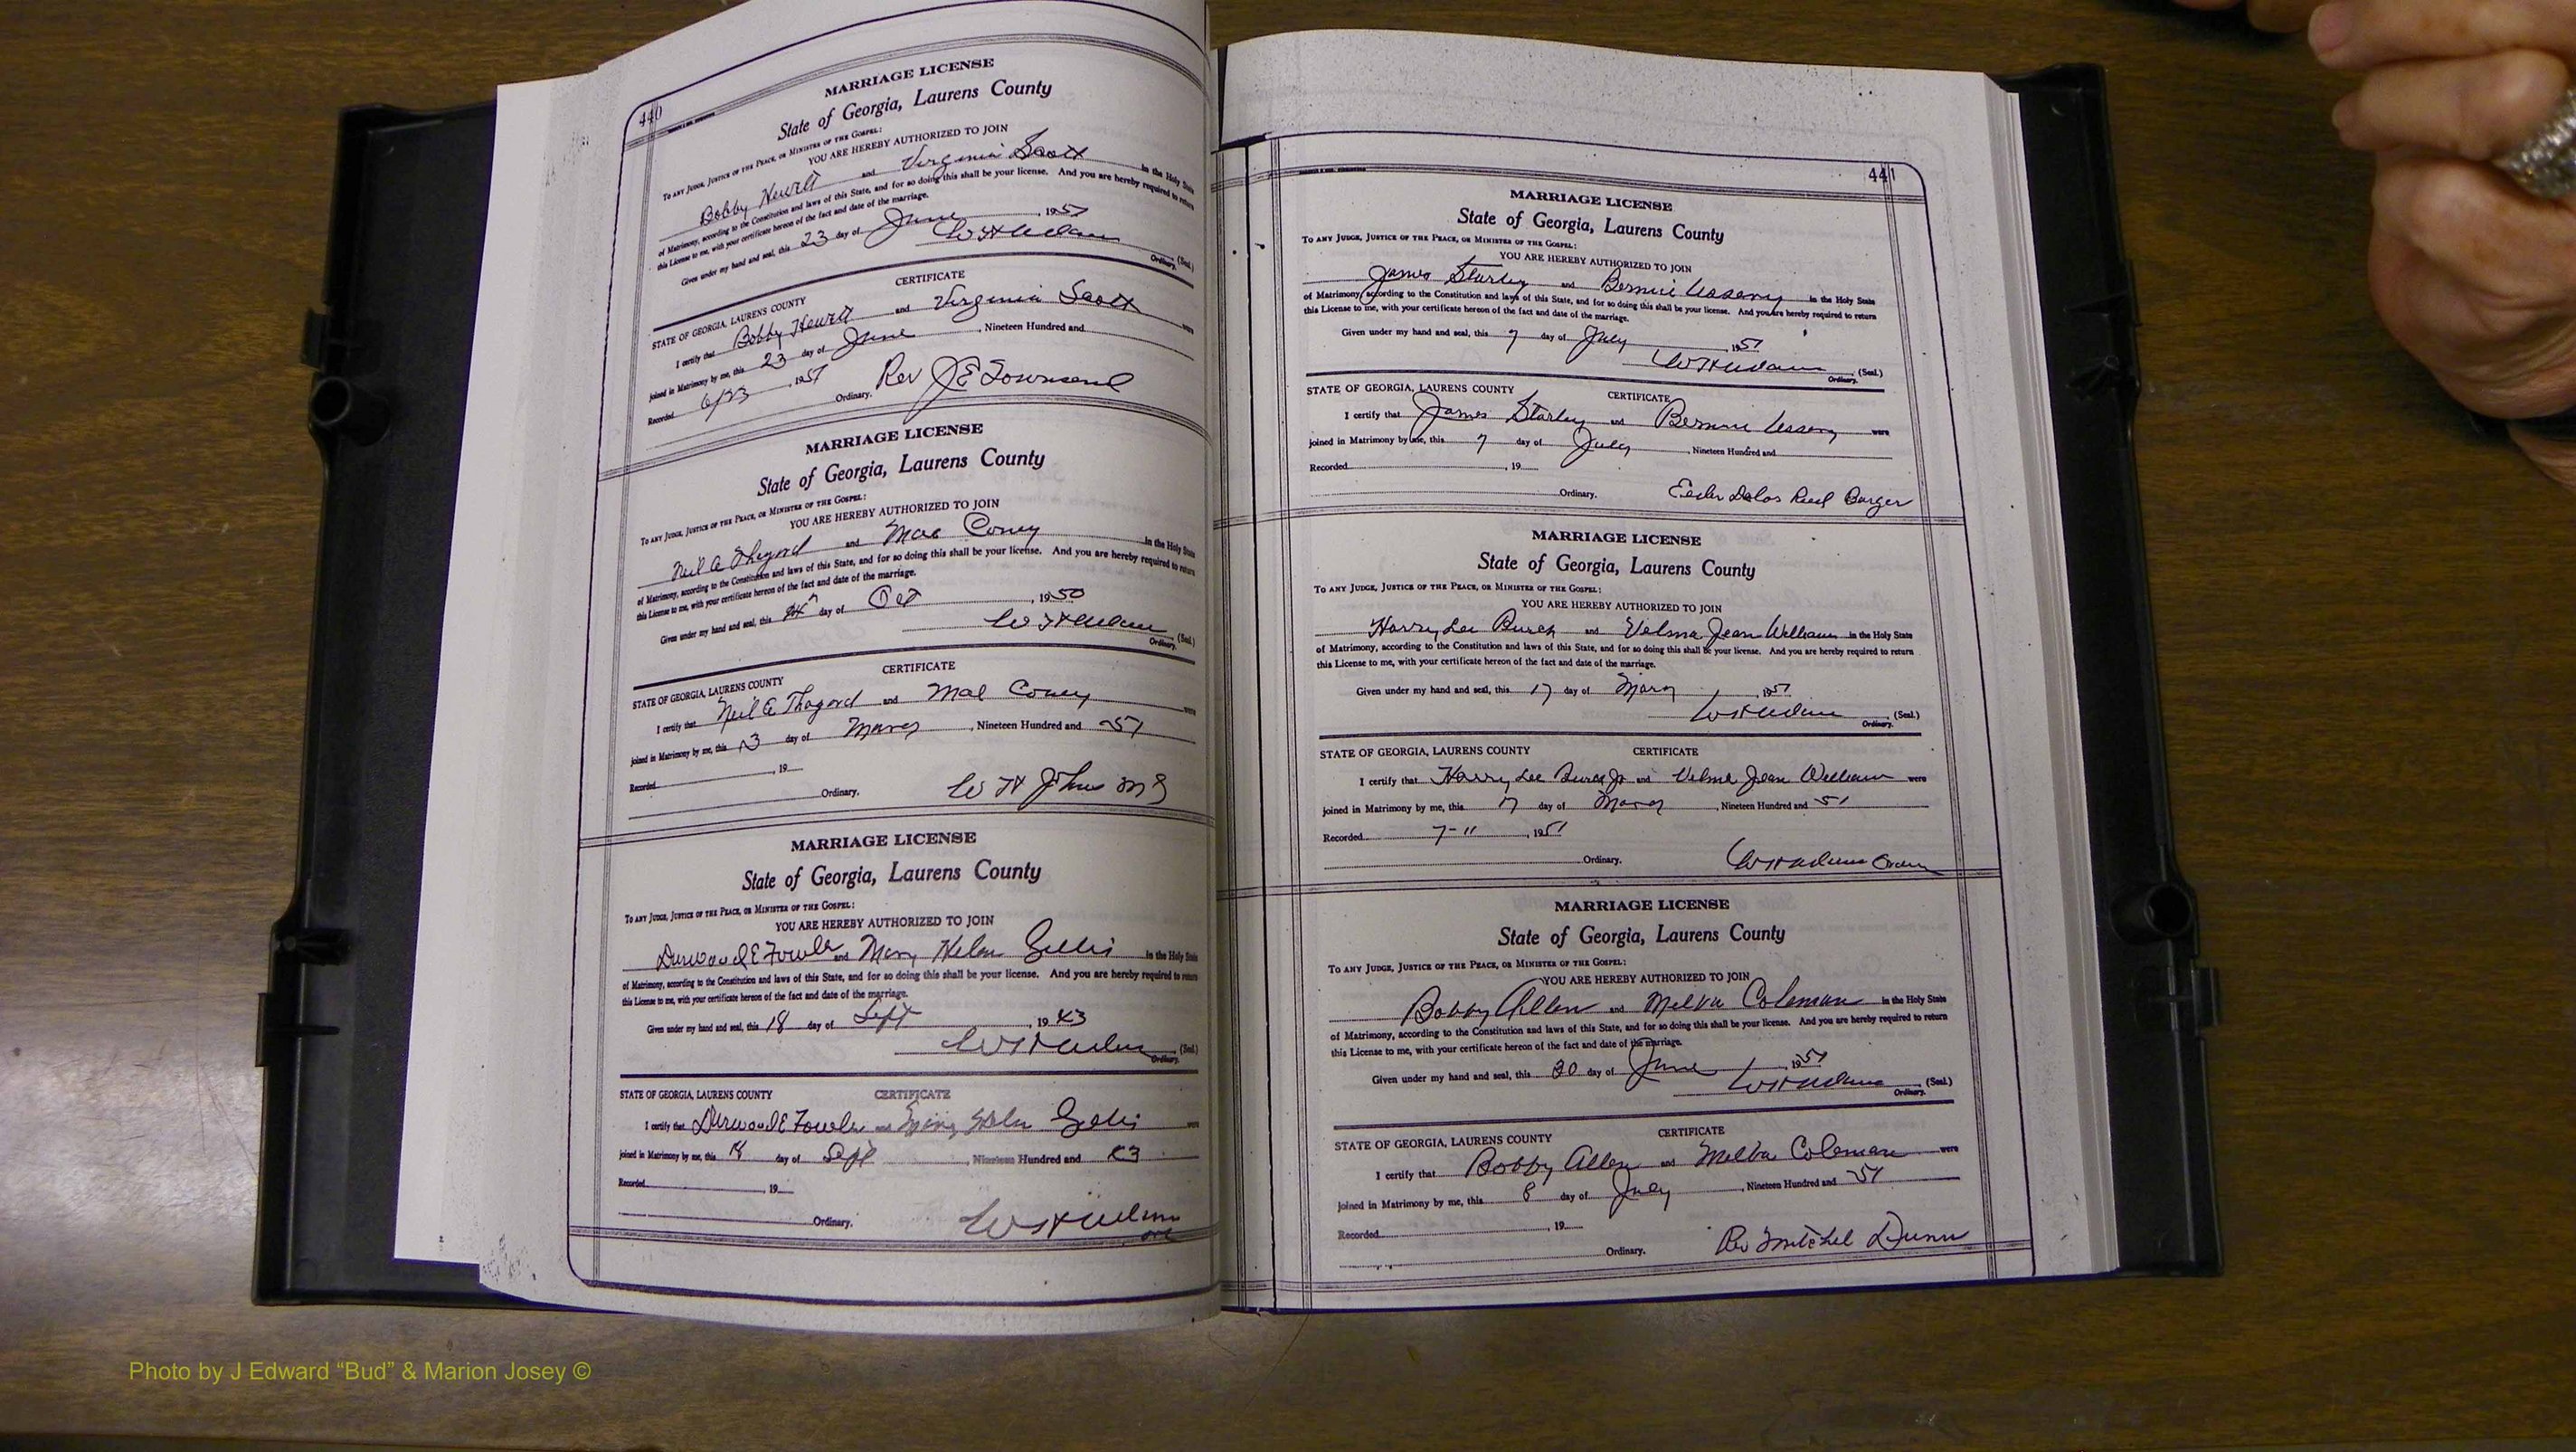 440
MARRIAGE LICENSE
State of Georgia, Laurens County
To any Judge, Justice of the Peace, or Minister of the Gospel:
YOU ARE HEREBY AUTHORIZED TO JOIN
Bobby Hewitt and Virginia Scott in the Holy State
of Matrimony, according to the Constitution and laws of this State, and for so doing this shall be your license. And you are hereby required to return
this License to me, with your certificate hereon of the fact and date of the marriage.
Given under my hand and seal, this 23 day of June, 1951
(Seal.)
Ordinary.
CERTIFICATE
STATE OF GEORGIA, LAURENS COUNTY
I certify that Bobby Hewitt and Virginia Scott were
joined in Matrimony by me, this 23 day of June, Nineteen Hundred and
Recorded 6/23, 1951
Ordinary. Rev J E Townsend
MARRIAGE LICENSE
State of Georgia, Laurens County
To any Judge, Justice of the Peace, or Minister of the Gospel:
YOU ARE HEREBY AUTHORIZED TO JOIN
Neil and Mae in the Holy State
of Matrimony, according to the Constitution and laws of this State, and for so doing this shall be your license. And you are hereby required to return
this License to me, with your certificate hereon of the fact and date of the marriage.
Given under my hand and seal, this day of Oct, 1950
W H Adams (Seal.)
Ordinary.
CERTIFICATE
STATE OF GEORGIA, LAURENS COUNTY
I certify that Neil and Mae were
joined in Matrimony by me, this day of, Nineteen Hundred and 51
Recorded, 19
Ordinary. W H
MARRIAGE LICENSE
State of Georgia, Laurens County
To any Judge, Justice of the Peace, or Minister of the Gospel:
YOU ARE HEREBY AUTHORIZED TO JOIN
Durwood E Fowler and Mary Helen Gillis in the Holy State
of Matrimony, according to the Constitution and laws of this State, and for so doing this shall be your license. And you are hereby required to return
this License to me, with your certificate hereon of the fact and date of the marriage.
Given under my hand and seal, this 18 day of Sept, 1943
W H Adams (Seal.)
Ordinary.
STATE OF GEORGIA, LAURENS COUNTY CERTIFICATE
I certify that Durwood E Fowler and Helen Gillis were
joined in Matrimony by me, this 18 day of Sept, Nineteen Hundred and 43
Recorded, 19
Ordinary. W H Adams
441
MARRIAGE LICENSE
State of Georgia, Laurens County
To any Judge, Justice of the Peace, or Minister of the Gospel:
YOU ARE HEREBY AUTHORIZED TO JOIN
James and in the Holy State
of Matrimony, according to the Constitution and laws of this State, and for so doing this shall be your license. And you are hereby required to return
this License to me, with your certificate hereon of the fact and date of the marriage.
Given under my hand and seal, this 7 day of July, 1951
W H Adams (Seal.)
Ordinary.
STATE OF GEORGIA, LAURENS COUNTY CERTIFICATE
I certify that James and were
joined in Matrimony by me, this 7 day of July, Nineteen Hundred and
Recorded, 19
Ordinary. Elder Delos Barger
MARRIAGE LICENSE
State of Georgia, Laurens County
To any Judge, Justice of the Peace, or Minister of the Gospel:
YOU ARE HEREBY AUTHORIZED TO JOIN
Harry Lee Burch and Velma Jean William in the Holy State
of Matrimony, according to the Constitution and laws of this State, and for so doing this shall be your license. And you are hereby required to return
this License to me, with your certificate hereon of the fact and date of the marriage.
Given under my hand and seal, this 17 day of, 1951
W H Adams (Seal.)
Ordinary.
STATE OF GEORGIA, LAURENS COUNTY CERTIFICATE
I certify that Harry Lee Burch Jr and Velma Jean William were
joined in Matrimony by me, this 17 day of, Nineteen Hundred and 51
Recorded 7-11, 1951
Ordinary. W H Adams
MARRIAGE LICENSE
State of Georgia, Laurens County
To any Judge, Justice of the Peace, or Minister of the Gospel:
YOU ARE HEREBY AUTHORIZED TO JOIN
Bobby Allen and Melba Coleman in the Holy State
of Matrimony, according to the Constitution and laws of this State, and for so doing this shall be your license. And you are hereby required to return
this License to me, with your certificate hereon of the fact and date of the marriage.
Given under my hand and seal, this 30 day of June, 1951
W H Adams (Seal.)
Ordinary.
CERTIFICATE
STATE OF GEORGIA, LAURENS COUNTY
I certify that Bobby Allen and Melba Coleman were
joined in Matrimony by me, this 8 day of July, Nineteen Hundred and 51
Recorded, 19
Ordinary. Rev Mitchel Dunn
Photo by J Edward “Bud” & Marion Josey ©